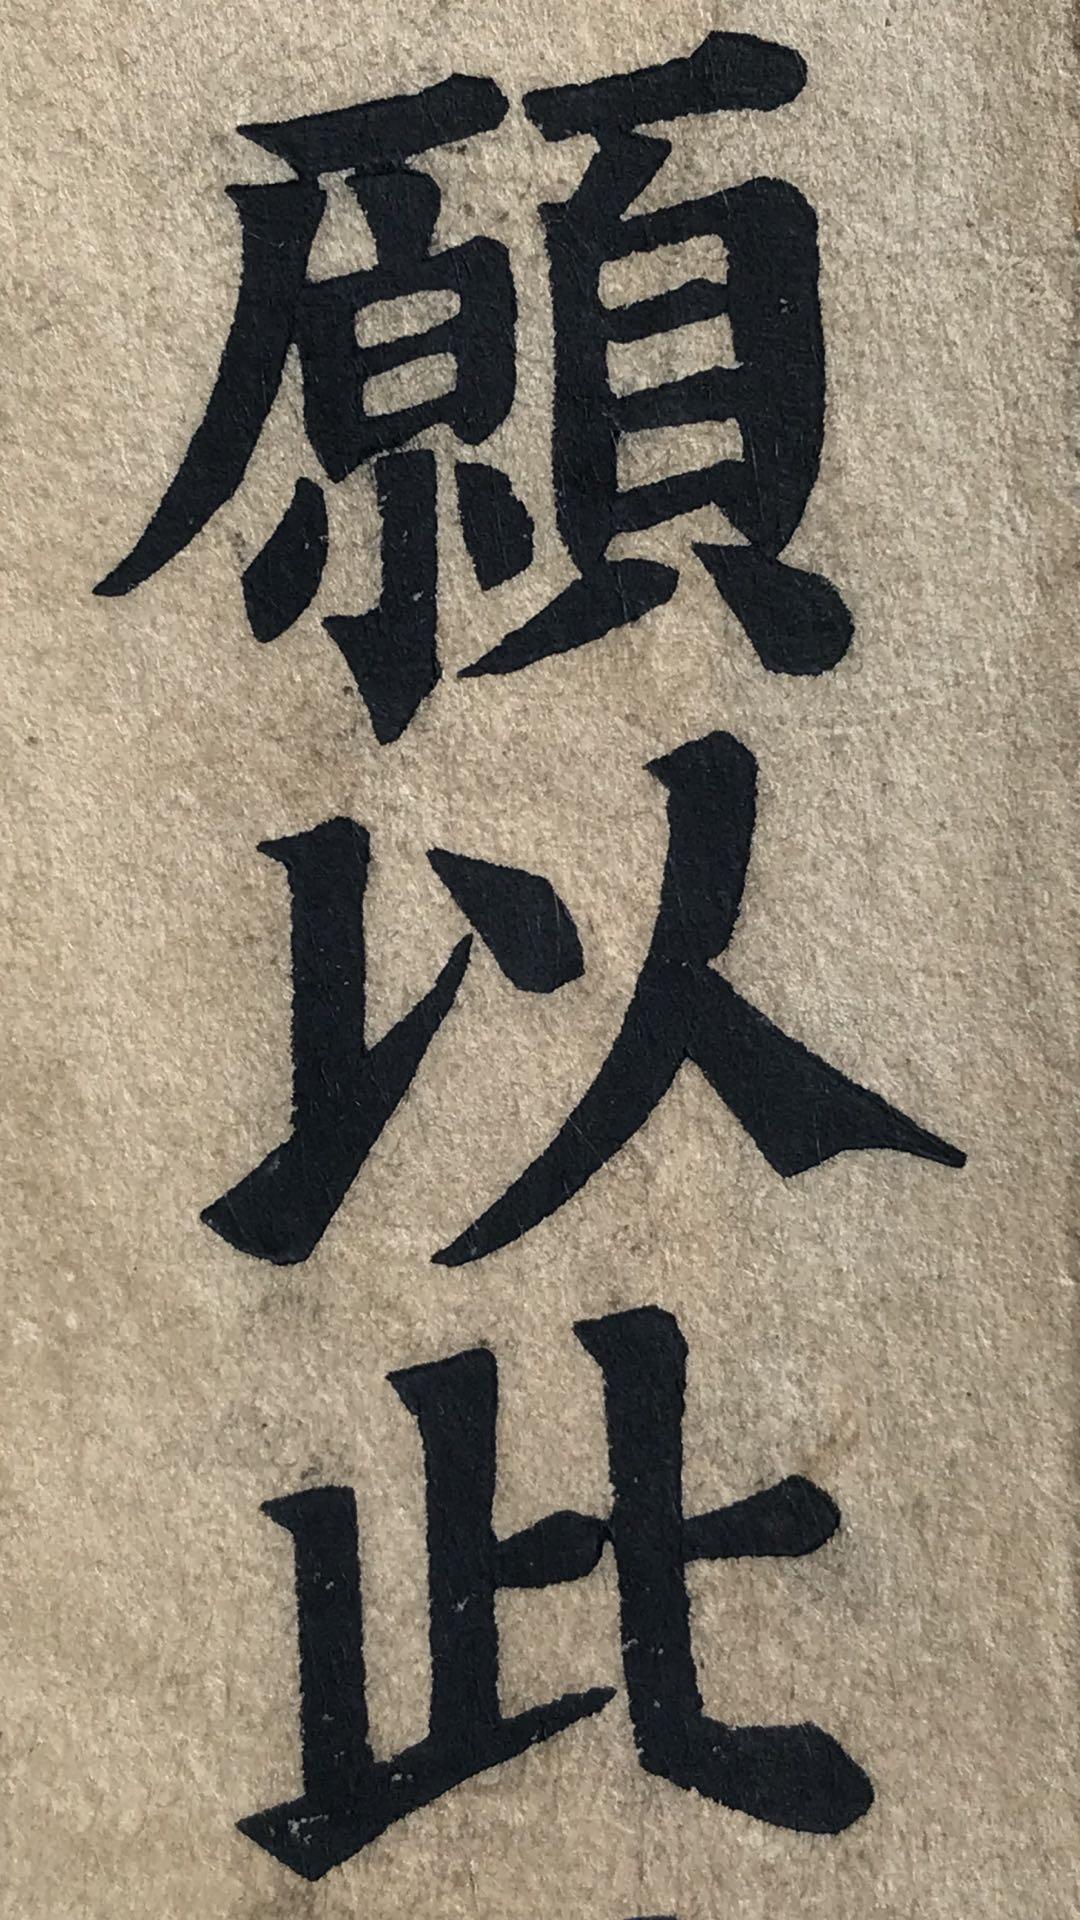 願以此